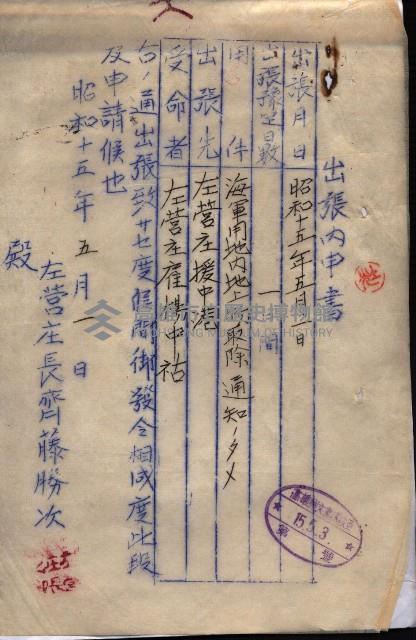 出張內申書
出張月日 昭和十五年五月一日
出張豫定日數 一日間
用件 海軍用地內地上物取除通知ノタメ
出張先 左營庄援中港
受命者 左營庄雇 楊中祜
右ノ通出張致サセ度候間御發令相成度此段
及申請候也
昭和十五年五月一日
左營庄長齊藤勝次
殿
高雄市立歷史博物館
KAOHSIUNG MUSEUM OF HISTORY
15.5.3.
第 號